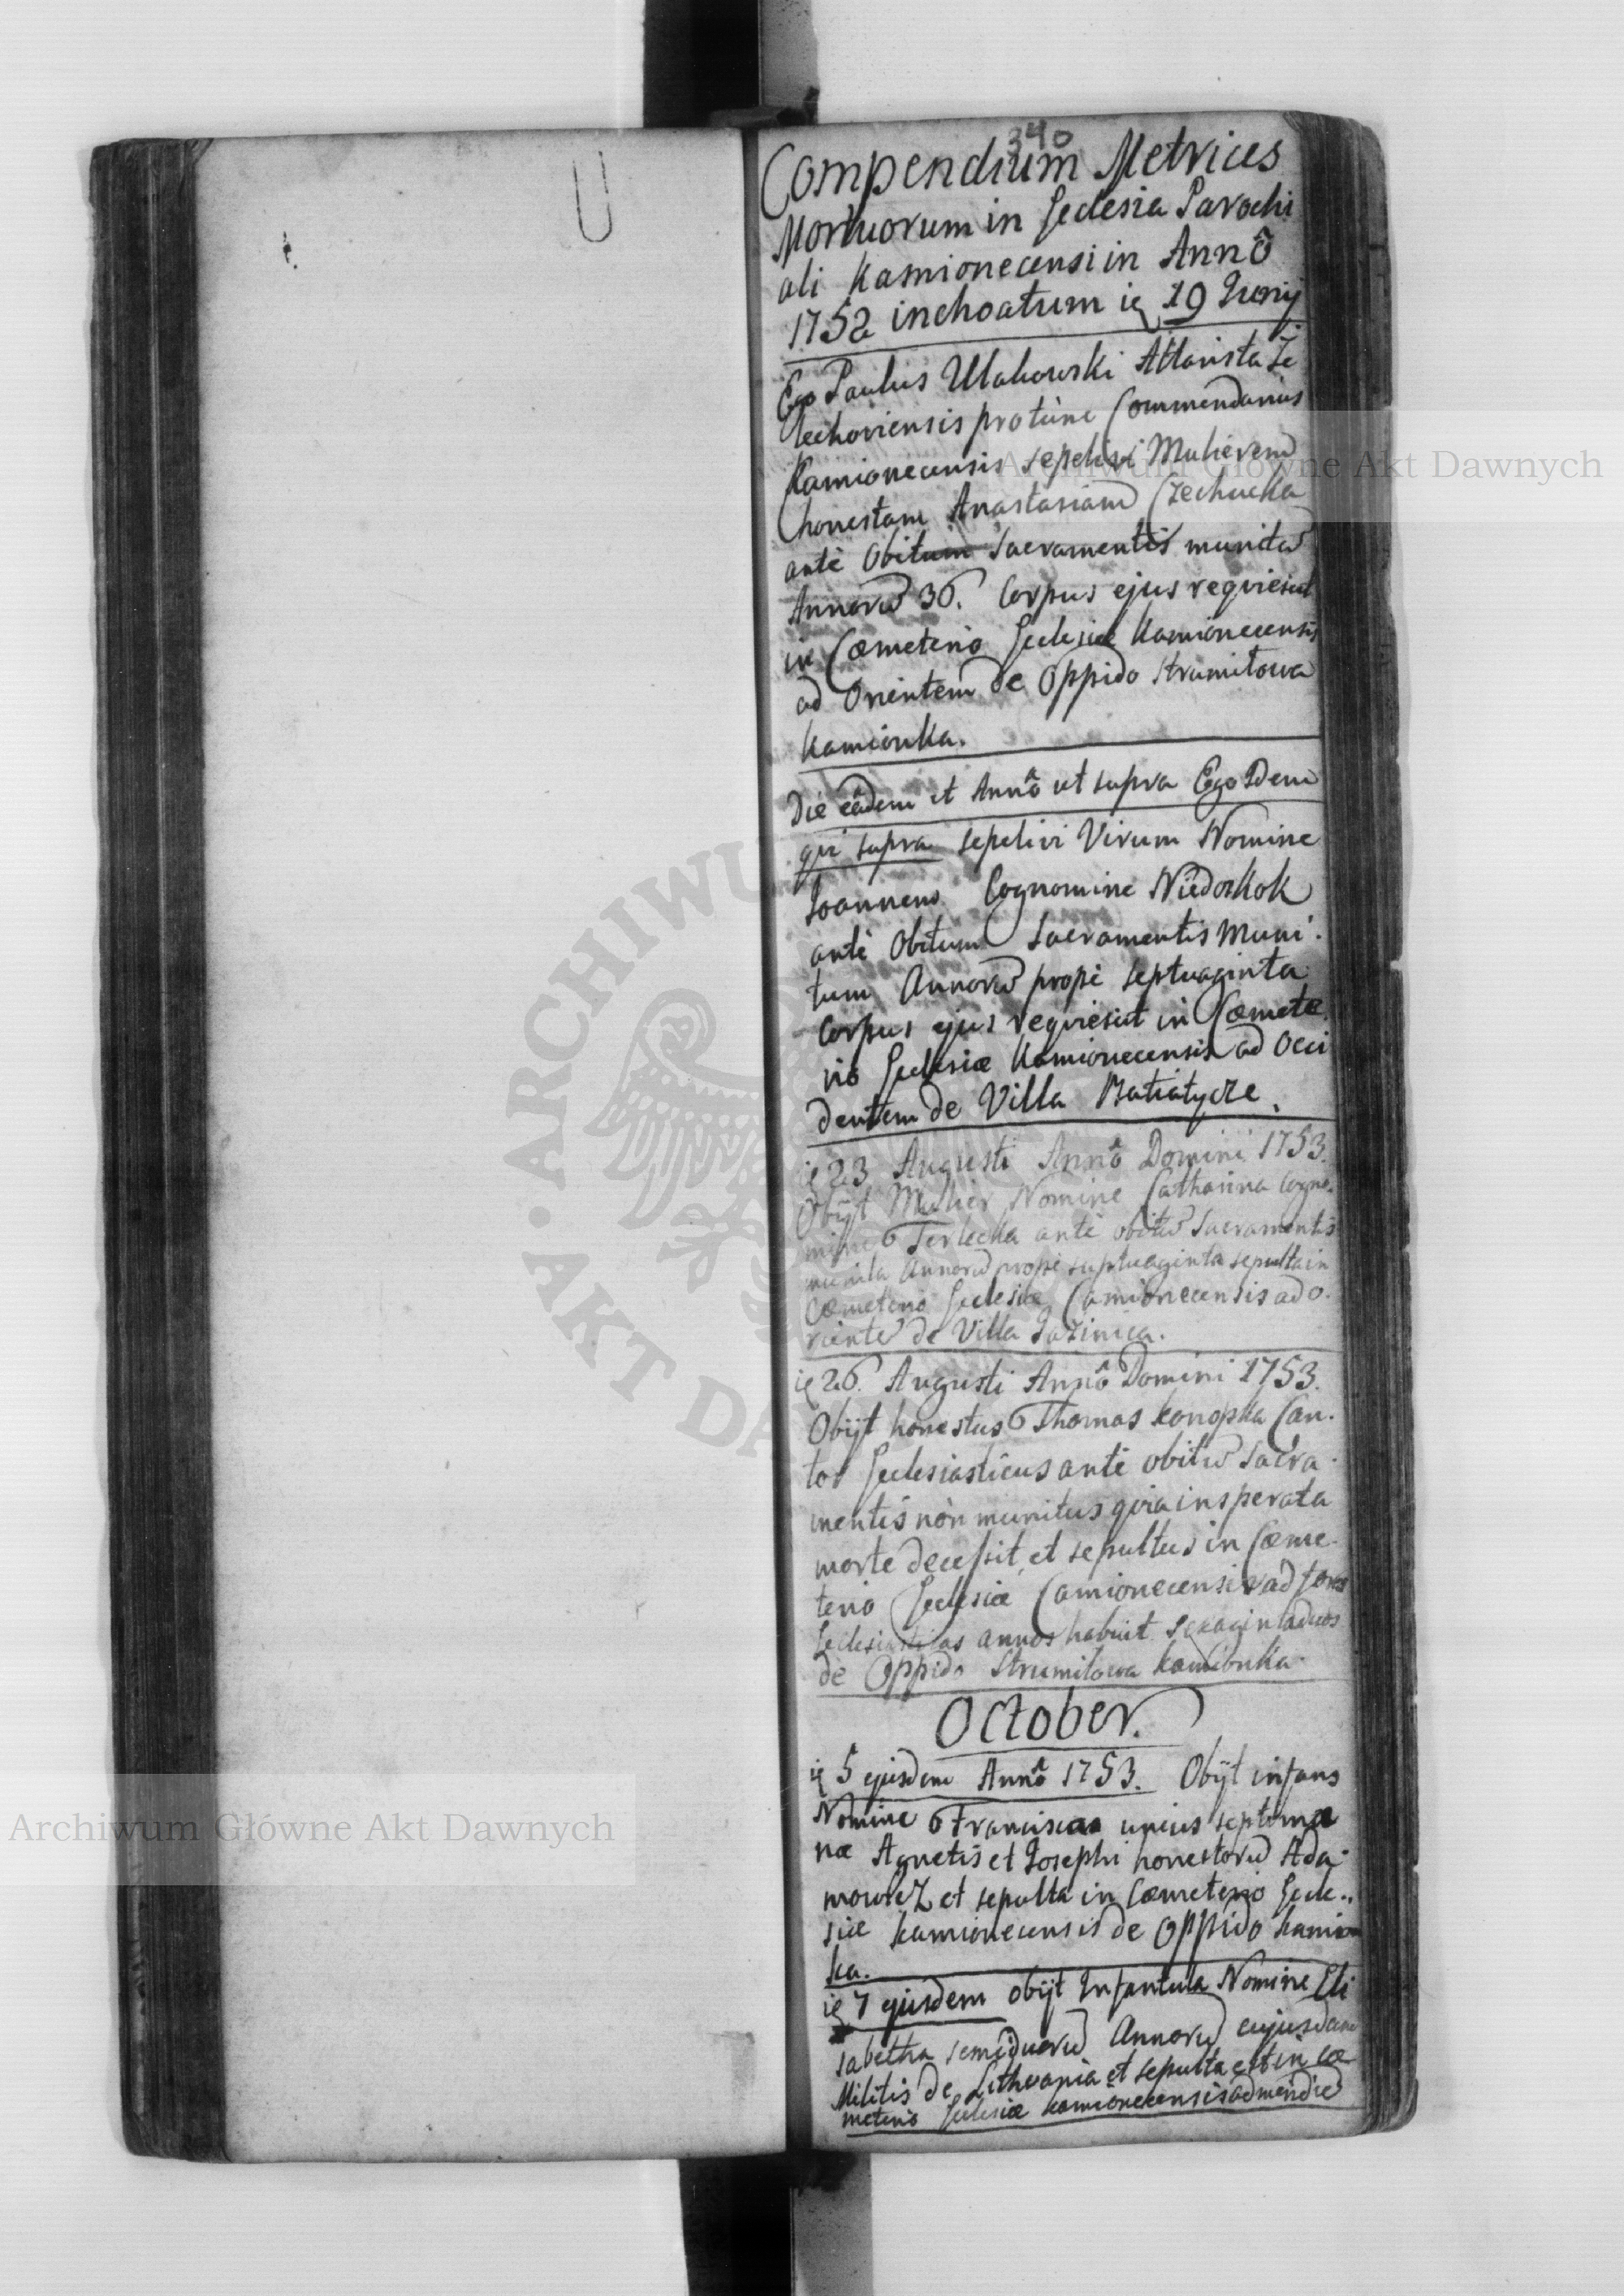 340
Compendium Metrices
Mortuorum in Ecclesia Parochi
ali Kamionecensi in Annô
1752 inchoatum ię 19 Junij
Ego Paulus Ulakowski Altarista Że
lechoviensis protunc Commendarius
Kamionecensis sepelivi Mulierem
honestam Anastasiam Czechucka
antè Obitum Sacramentis munitã
Annorũ 36. Corpus ejus requiescit
in Cœmeterio Ecclesiæ Kamionecensis
ad Orientem de Oppido Strumiłowa
Kamionka.
Die eâdem et Annô ut supra Ego Idem
qui supra sepelivi Virum Nomine
Joannem Cognomine Niedoskok
antè Obitum Sacramentis Muni
tum Annorũ propè septuaginta
Corpus ejus requiescit in Cœmete
rio Ecclesiæ Kamionecensis ad Occi
dentem de Villa Batiatycze.
ię 23 Augusti Annô Domini 1753.
Obijt Mulier Nomine Catharina Cogno
mine Terlecka antè obitũ Sacramentis
munita Annorũ propè suptuaginta sepulta in
Cœmeterio Ecclesiæ Camionecensis ad o
rientẽ de Villa Jazinica.
ię 26. Augusti Annô Domini 1753.
Obijt honestus Thomas Konopka Can
tor Ecclesiasticus antè obitũ Sacra
mentis nòn munitus quia insperata
morte decessit, et sepultus in Cœme
terio Ecclesiæ Camionecensis ad fores
annos habuit sexaginta duos
de Oppido Strumiłowa Kamionka.
October.
ię 5 ejusdem Annô 1753. Obijt infans
Nomine Francisca unius septima
næ Agnetis et Josephi honestorũ Ada
mowicz et sepulta in Cœmeterio Eccle
siæ Kamionecensis de Oppido Kamion
ka.
ię 7 ejusdem obijt Infantula Nomine Eli
sabetha semiduorũ Annorũ cujusdam
Militis de Lithvania et sepulta est in cœ
meterio Ecclesiæ Kamionecensis ad meridiẽ
Archiwum Główne Akt Dawnych
Archiwum Główne Akt Dawnych